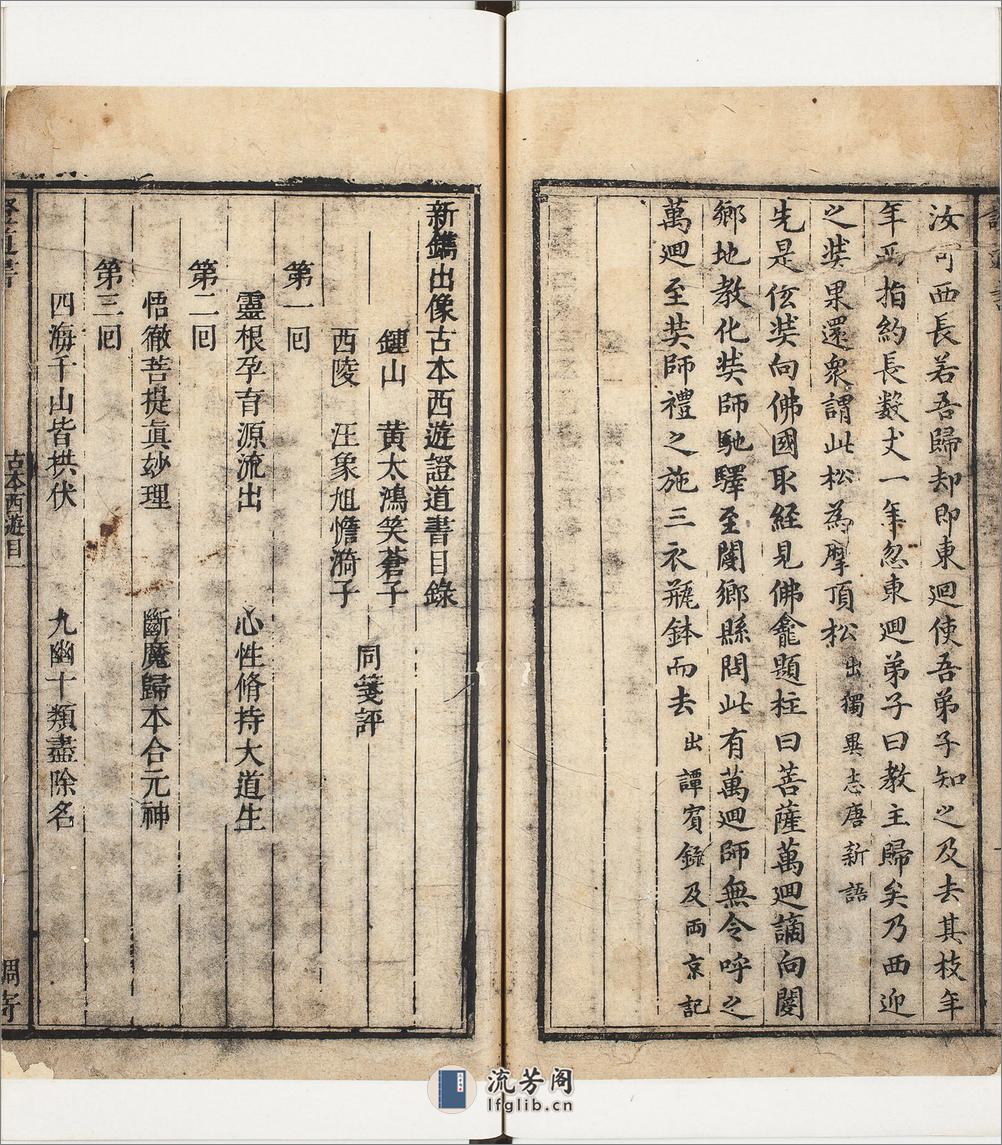 汝可西長若吾歸却即東迴使吾弟子知之及去其枝年
年西指約長数丈一年忽東迴弟子曰教主歸矣乃西迎
之奘果還衆謂此松為摩頂松出獨異志唐新語
先是伭奘向佛國取經見佛龕題柱曰菩薩萬迴謫向閿
鄉地教化奘師馳驛至閿鄉縣問此有萬迴師無令呼之
萬迴至奘師禮之施三衣瓶鉢而去出譚賓錄及両京記
新鐫出像古本西遊證道書目錄
鍾山　黄太鴻笑蒼子
西陵　汪象旭憺漪子
同箋評
第一回
靈根孕育源流出　心性脩持大道生
第二回
悟徹菩提眞妙理　斷魔歸本合元神
第三回
四海千山皆拱伏　九幽十類盡除名
古本西遊目一
流芳阁
lfglib.cn